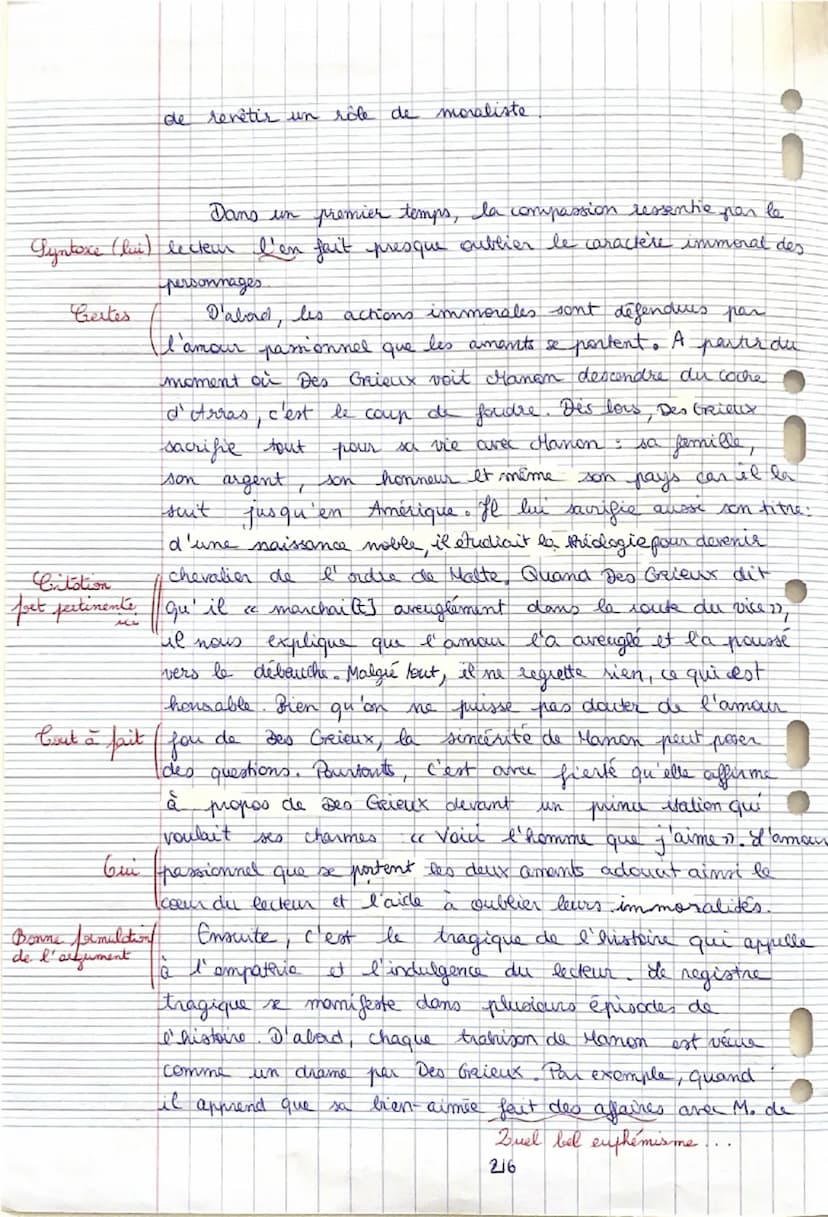 de revêtir un rôle de moraliste.
Dans un premier temps, la compassion ressentie par le
Syntaxe (lui) lecteur l'en fait presque oublier le caractère immoral des
personnages.
Certes D'abord, les actions immorales sont défendues par
l'amour passionnel que les amants se portent. A partir du
moment où Des Grieux voit Manon descendre du coche
d'Arras, c'est le coup de foudre. Dès lors, Des Grieux
sacrifie tout pour sa vie avec Manon : sa famille,
son argent, son honneur et même son pays car il la
suit jusqu'en Amérique. Il lui sacrifie aussi son titre :
d'une naissance noble, il étudiait la théologie pour devenir
Citation chevalier de l'ordre de Malte. Quand Des Grieux dit
fort pertinente ici qu'il « marchai[t] aveuglément dans la route du vice »,
il nous explique que l'amour l'a aveuglé et l'a poussé
vers la débauche. Malgré tout, il ne regrette rien, ce qui est
honorable. Bien qu'on ne puisse pas douter de l'amour
Tout à fait fou de Des Grieux, la sincérité de Manon peut poser
des questions. Pourtants, c'est avec fierté qu'elle affirme
à propos de Des Grieux devant un prince italien qui
voulait ses charmes « Voici l'homme que j'aime ». L'amour
Oui passionnel que se portent les deux amants adoucit ainsi le
cœur du lecteur et l'aide à oublier leurs immoralités.
Bonne formulation Ensuite, c'est le tragique de l'histoire qui appelle
de l'argument à l'empathie et l'indulgence du lecteur. Le registre
tragique se manifeste dans plusieurs épisodes de
l'histoire. D'abord, chaque trahison de Manon est vécue
comme un drame par Des Grieux. Par exemple, quand
il apprend que sa bien-aimée fait des affaires avec M. de
Quel bel euphémisme...
2/6